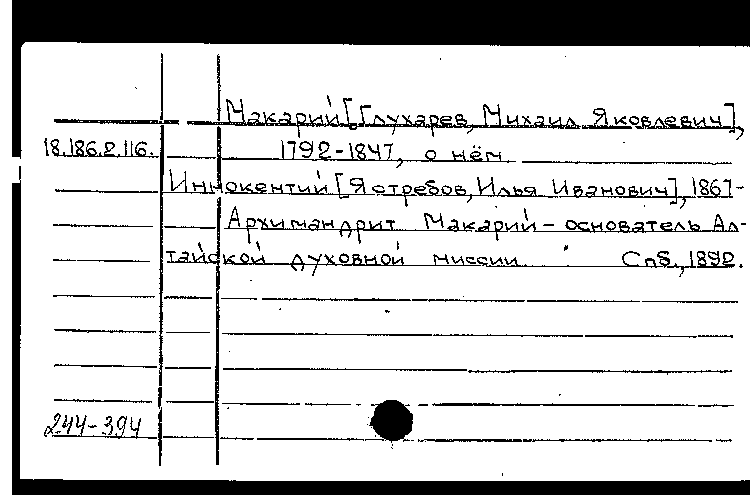 Макарий [Глухарев, Михаил Яковлевич],
18.186.2.116. 1792-1847, о нём
Иннокентий [Ястребов, Илья Иванович], 1867-
Архимандрит Макарий – основатель Ал-
тайской духовной миссии. Спб., 1892.
244-394